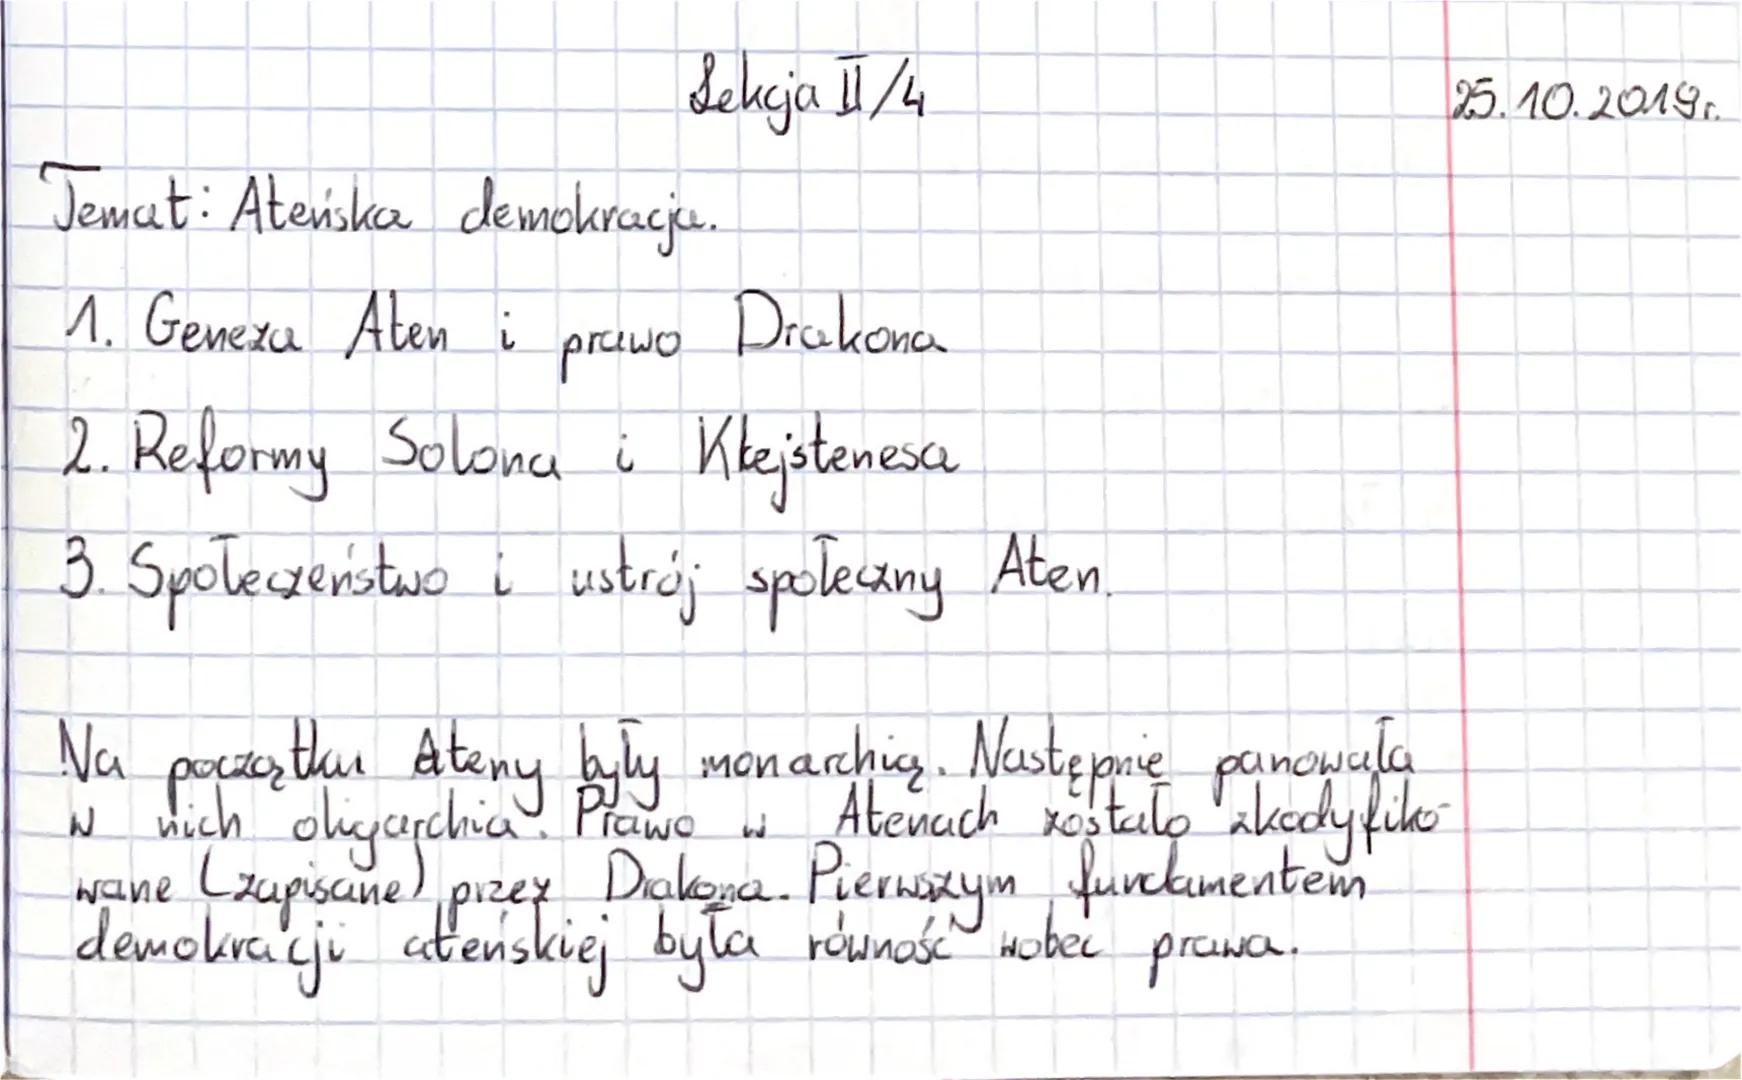 Lekcja II/4
25.10.2019r.
Temat: Ateńska demokracja.
1. Geneza Aten i prawo Drakona
2. Reformy Solona i Kłejstenesa
3. Społeczeństwo i ustrój społeczny Aten.
Na początku Ateny były monarchią. Następnie panowała
w nich oligarchia. Prawo w Atenach zostało zkodyfiko-
wane (zapisane) przez Drakona. Pierwszym fundamentem
demokracji ateńskiej była równość wobec prawa.